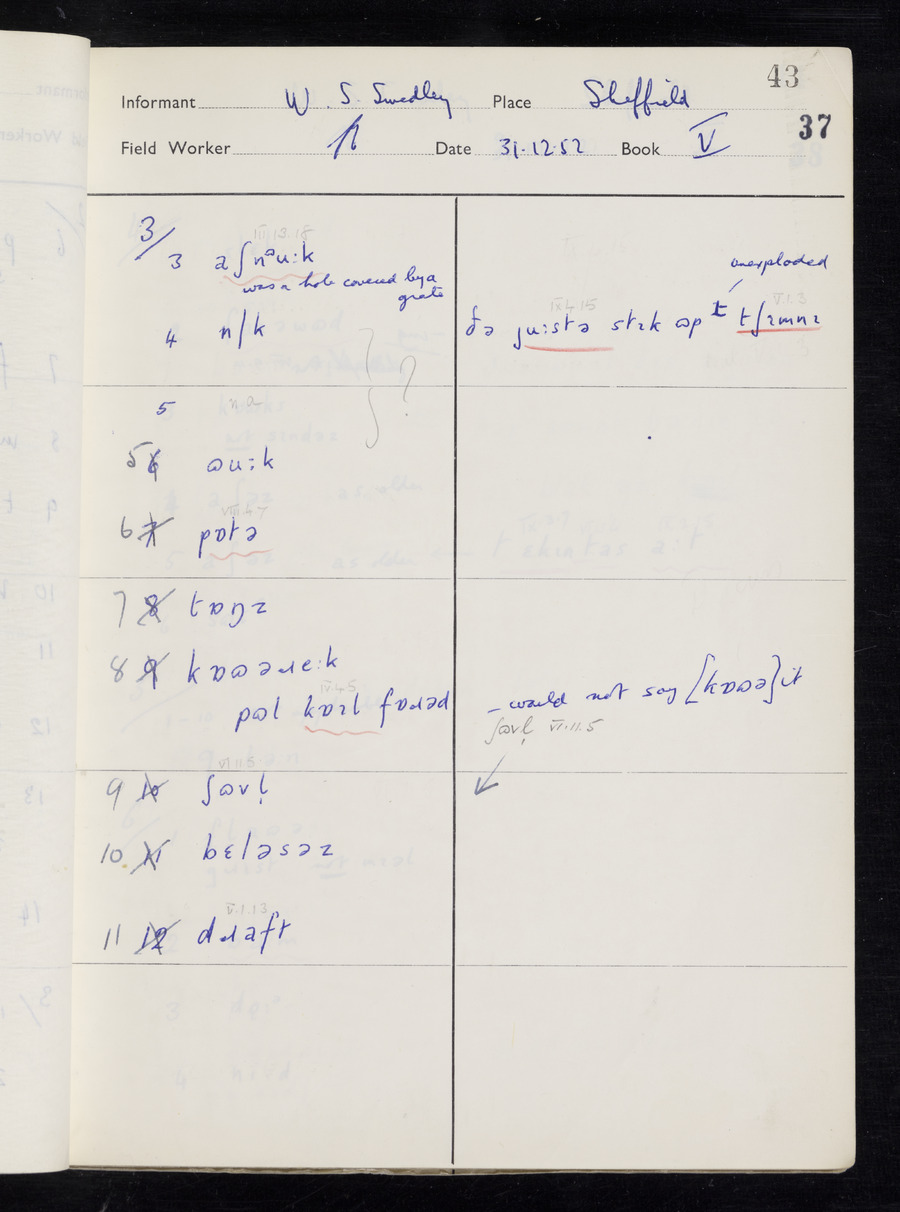 43
Informant W. S. Smedley Place Sheffield
37
Field Worker Date 31·12·52 Book V
3/
III.13.18
3 aʃnᵊuːk
was a hole covered by a
grate
unexploded
4 n/k
IX.4.15 V.1.3
ðə juːstə stɪk ɷp t tʃɪmnɪ
?
5 na
5 6 ɷuːk
VIII.4.7
6 7 pɒtə
7 8 tɒŋz
8 9 kɒɷəɹeːk
IV.4.5
pɷl kɒɪl fɒɹəd
– would not say [kɒɷə] it
ʃɷvl̩ VI.11.5
9 10 ʃɷvl̩
10 11 bɛləsəz
V.1.13
11 12 dɹaft